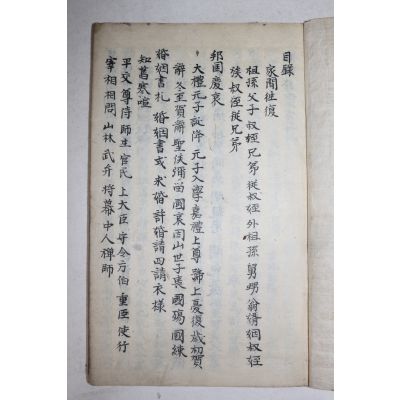 目錄
家間往復
祖孫 父子 叔姪 兄弟 從叔姪 外祖孫 舅甥 翁婿 姻叔姪
族叔姪 從兄弟
邦國慶哀
大禮 元子誕降 元子入學 嘉禮 上尊 諡上 憂復 歲初賀
辭 冬至賀 謝聖候 彌留 國哀 因山 世子喪 國殤 國練
婚姻書札 婚姻書式 求婚 許婚 請四 請衣樣
知舊寒暄
平交 尊侍 師生 官民 上大臣 守令 方伯 重臣 使行
宰相相問 山林 武弁 將幕 中人 禪師